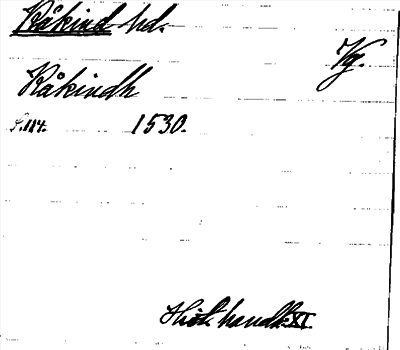 Råkind hd.
Vg.
Råkindh
S. 114. 1530.
Hist. handl. XI.